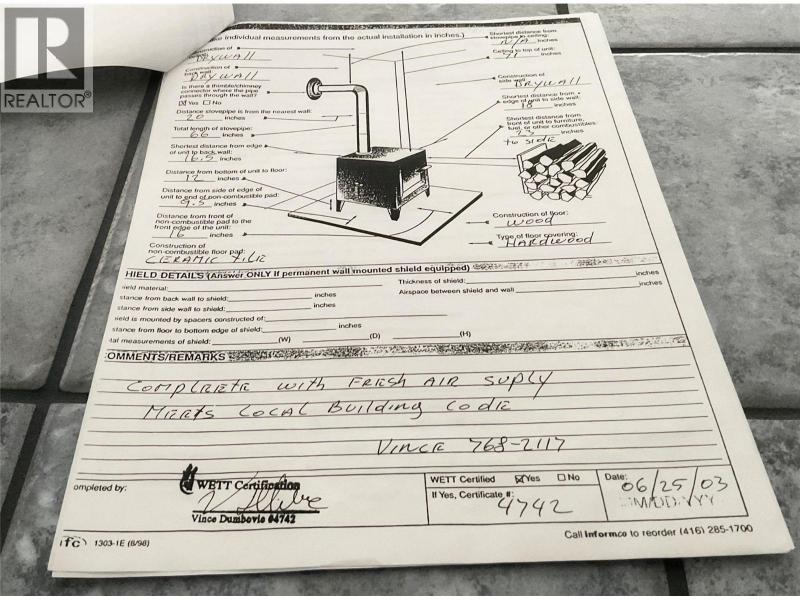 individual measurements from the actual installation in inches.)
Shortest distance from
stovepipe to ceiling:
N/A inches
Construction of
DRYWALL
Ceiling to top of unit:
71 inches
Construction of
back wall:
DRYWALL
Construction of
side wall:
DRYWALL
Is there a thimble/chimney
connector where the pipe
passes through the wall?
☒ Yes ☐ No
Shortest distance from
edge of unit to side wall:
18 inches
Distance stovepipe is from the nearest wall:
20 inches
Shortest distance from
front of unit to furniture,
fuel, or other combustibles:
inches
to SIDE
Total length of stovepipe:
66 inches
Shortest distance from edge
of unit to back wall:
16.5 inches
Distance from bottom of unit to floor:
12 inches
Distance from side of edge of
unit to end of non-combustible pad:
9.5 inches
Distance from front of
non-combustible pad to the
front edge of the unit:
16 inches
Construction of floor:
WOOD
Type of floor covering:
HARDWOOD
Construction of
non-combustible floor pad:
CERAMIC TILE
HIELD DETAILS (Answer ONLY if permanent wall mounted shield equipped)
ield material:
Thickness of shield: inches
stance from back wall to shield: inches
Airspace between shield and wall inches
stance from side wall to shield: inches
ield is mounted by spacers constructed of:
stance from floor to bottom edge of shield: inches
tal measurements of shield: (W) (D) (H)
OMMENTS/REMARKS
COMPLRETE WITH FRESH AIR SUPLY
MEETS LOCAL BUILDING CODE
VINCE 768-2117
ompleted by:
WETT Certification
Vince Dumbovic #4742
WETT Certified ☒Yes ☐No
If Yes, Certificate #:
4742
Date:
06/25/03
MM/DD/YYY
ifc 1303-1E (8/98)
Call Informco to reorder (416) 285-1700
R
REALTOR®